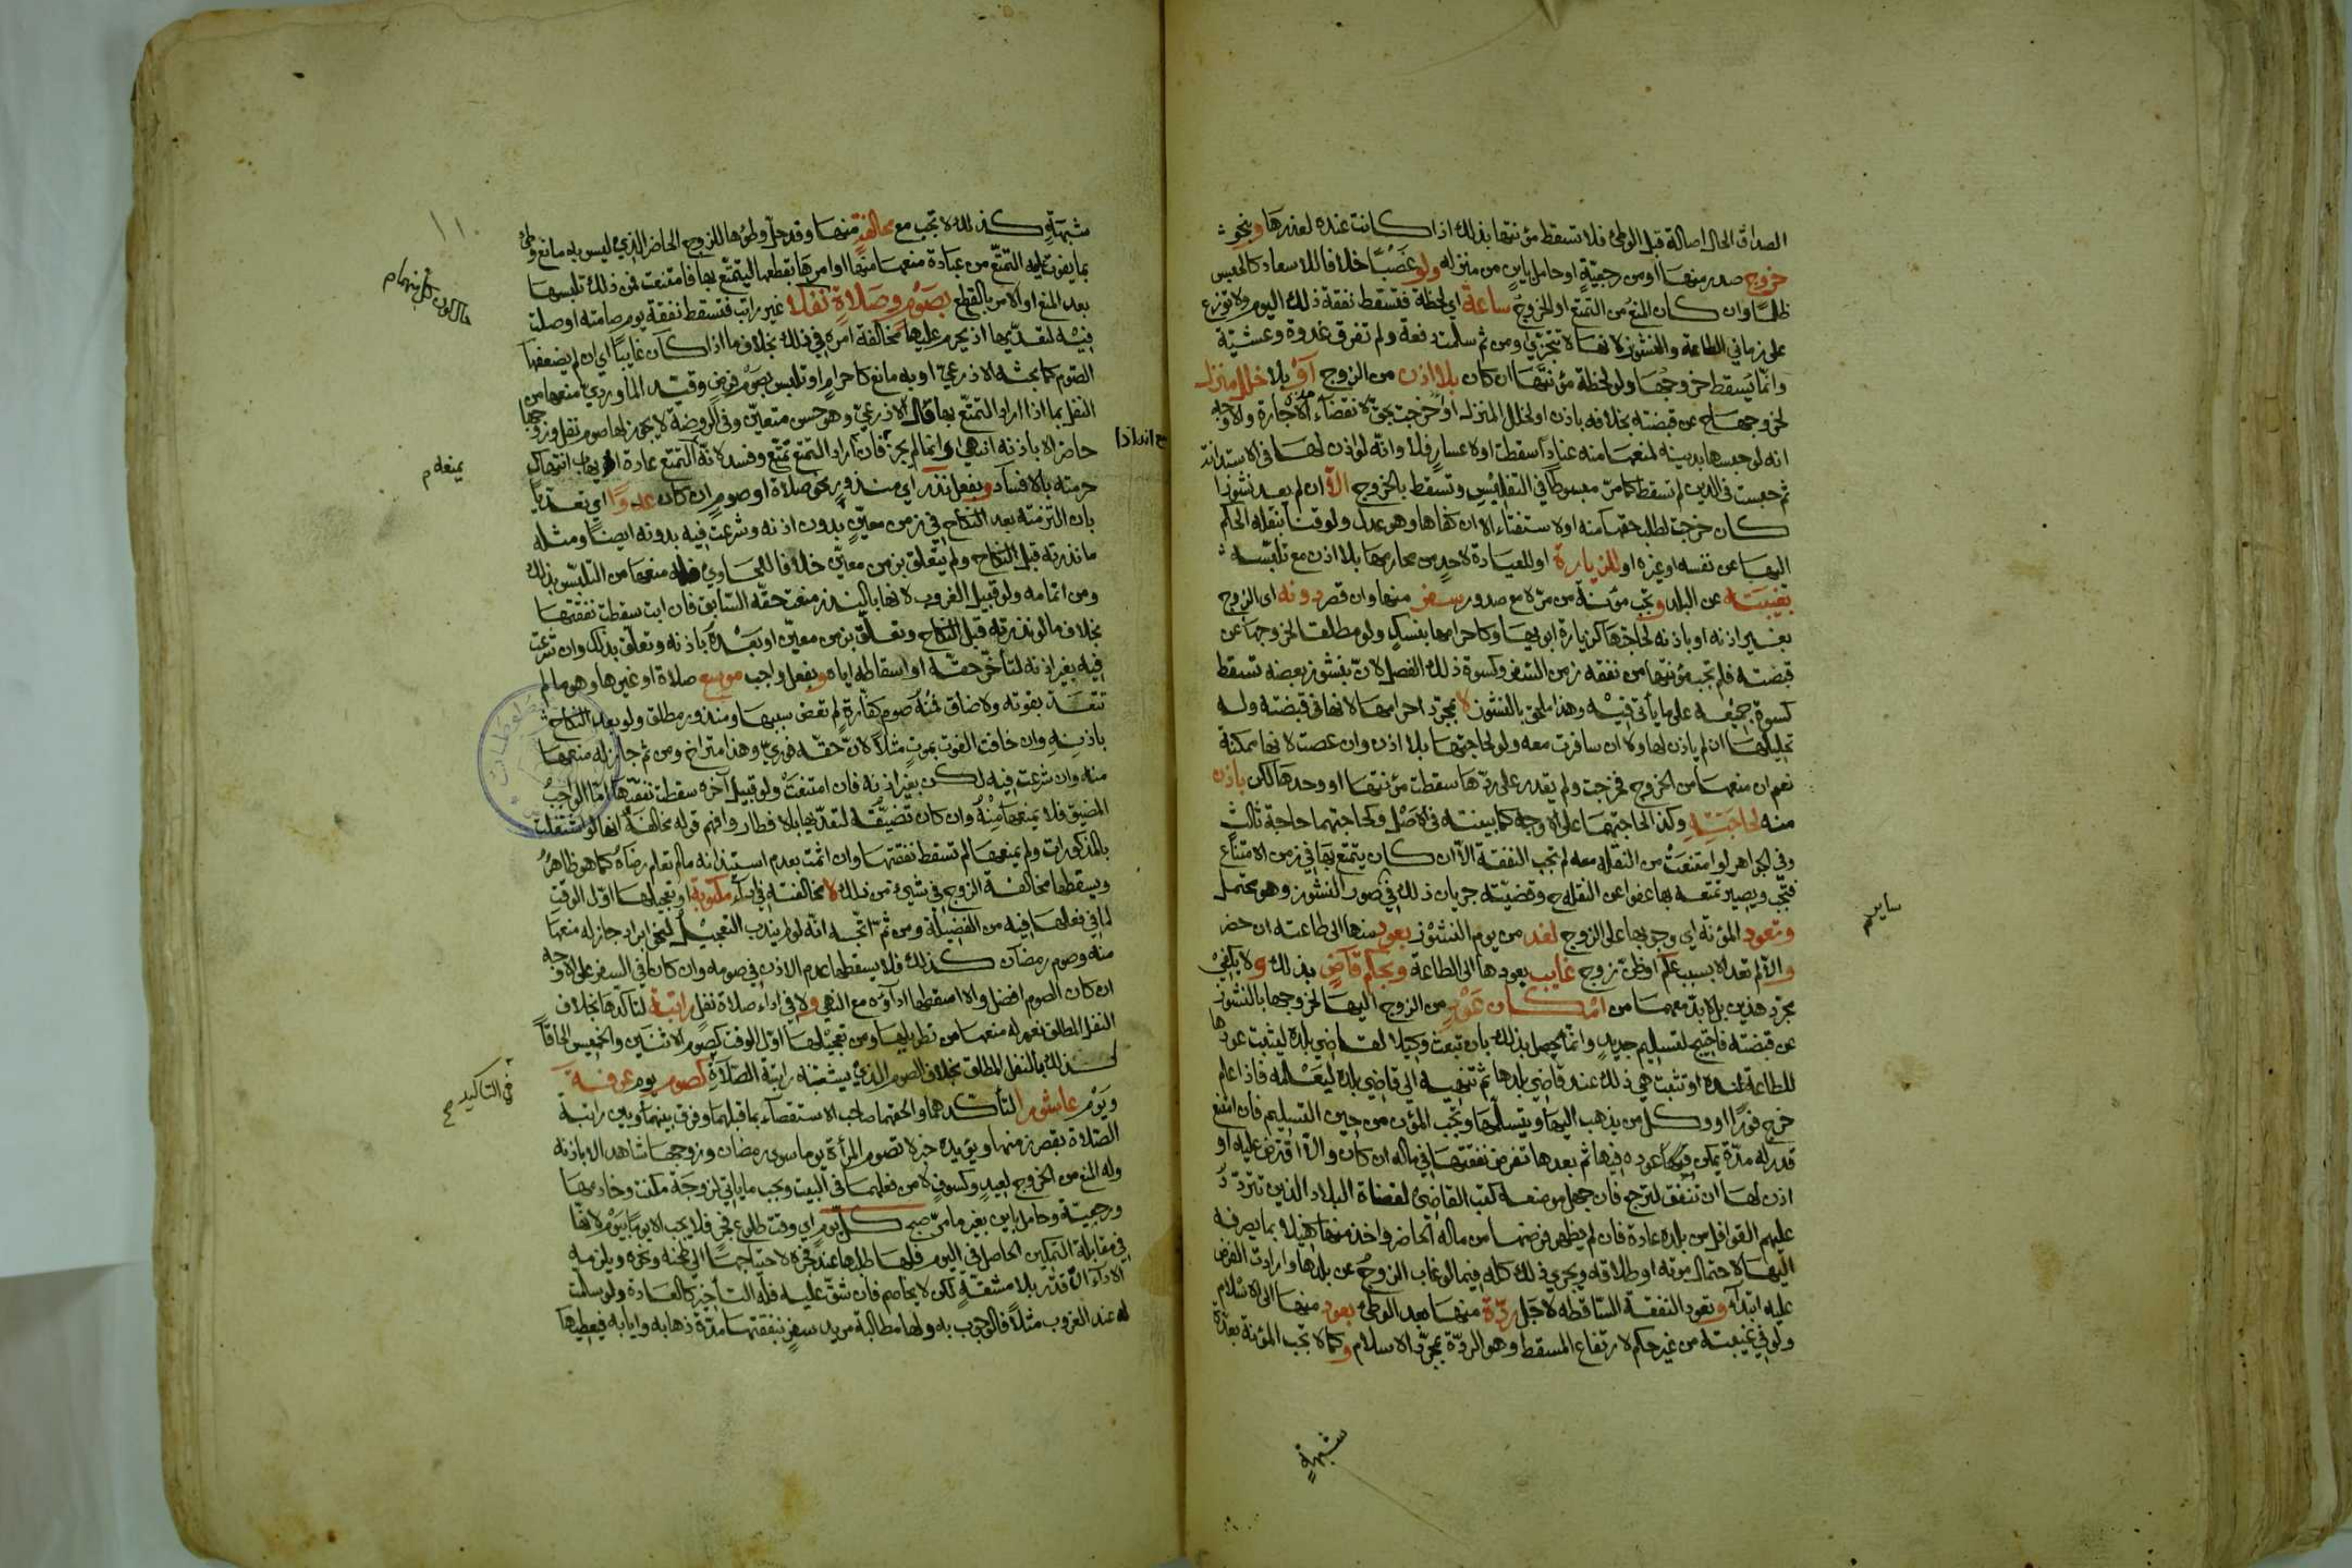 الصداق الحال اصالة قبل الوطئ فلا تسقط مؤنتها بذلك اذا كانت عنده لعذرها وبنحو
خروج صدر منها او من رجعيّةٍ او حامل باينٍ من منزله ولو غصبًا خلافا للاسعاد كالحبس
ظلمًا وان كان المنع من التمتع او الخروج ساعة اي لحظة فتسقط نفقة ذلك اليوم ولا توزع
على زماني الطاعة والنشوز لانها لا تتجزّي ومن ثم سلمت دفعة ولم تفرق غدوة وعشيّة
وانما يسقط خروجها ولو لحظة مؤنتها ان كان بلا اذن من الزوج او بلا خلل منزل
لخروجها ح عن قبضته بخلافه باذن او لخلل المنزل او خرجت بحق لانقضاء الاجارة والاوجه
انه لو حبسها بدينه لمنعها منه عنادًا سقطت او لاعسارٍ فلا وانه لو اذن لها في الاستدانة
ثم حبست في الدين لم تسقط كما مرّ مبسوطًا في التفليس وتسقط بالخروج الا ان لم يعد نشوزا
كان خرجت لطلب حقها منه او لاستفتاء الا ان كفاها وهو عدل ولو قنا بنقله الحكم
اليها عن نفسه او غيره او للزيارة او للعيادة لاحدٍ من محارمها بلا اذن مع تلبّسه
بغيبته عن البلد وتجب مؤنة من مرّ لا مع صدور سفر منها وان قصر دونه اى الزوج
بغير اذنه او باذنه لحاجتها كزيارة ابويها وكاحرامها بنسكٍ ولو مطلقا لخروجها عن
قبضته فلم تجب مؤنتها من نفقة زمن السفر وكسوة ذلك الفصل لان بنشوز بعضه تسقط
كسوة جميعه على ما يأتي فيه وهذا ملحق بالنشوز لا بمجرّد احرامها لانها في قبضته وله
تحليلها ان لم ياذن لها ولا ان سافرت معه ولو لحاجتها بلا اذن وان عصت لانها ممكنة
نعم ان منعها من الخروج فخرجت ولم يقدر على ردّها سقطت مؤنتها او وحدها لكن باذن
منه لحاجته وكذا لحاجتهما على الاوجه كما بينته في الاصل وكحاجتهما حاجة ثالثٍ
وفي الجواهر لو امتنعت من النقله معه لم تجب النفقة الا ان كان يتمتع بها في زمن الامتناع
فتجب ويصير تمتعه بها عفوا عن النقلة ح وقضيّته جريان ذلك في صور النشوز وهو محتمل
وتعود المؤنة اي وجوبها على الزوج لغد من يوم النشوز بعود منها الى طاعته ان حضر
والا لم تعد الا بسبب علم او ظنّ زوج غايب بعودها الى الطاعة وبحكم قاضٍ بذلك ولا يكفي
مجرّد هذين بل لا بد معهما من امكان عود من الزوج اليها لخروجها بالنشوز
عن قبضته فاحتيج لتسليم جديدٍ وانما يحصل بذلك بان تبعث وكيلا لقاضي بلده ليثبت عودها
للطاعة عنده او تثبت هي ذلك عند قاضي بلدها ثم تنهيه الي قاضي بلده ليعلمه فاذا علم
خرج فورًا او وكل من يذهب اليها ويتسلّمها وتجب المؤن من حين التسليم فان امتنع
قدر له مدّة يمكن عوده فيها ثم بعدها تفرض نفقتها في ماله ان كان والا اقترض عليه او
اذن لها ان تنفق لترجع فان جهل موضعه كتب القاضي لقضاة البلاد الذين تتردّد
عليهم القوافل من بلده عادة فان لم يظهر فرضها من ماله الحاضر واخذ منها كفيلا بما يصرفه
اليها لاحتمال موته او طلاقه ويجري ذلك كله فيما لو غاب الزوج عن بلدها وارادت الفرض
عليه ابتدآء وتعود النفقة السّاقطه لاجل ردّة منها بعد الوطئ بعود منها الى الاسلام
ولو في غيبته من غير حكم لارتفاع المسقط وهو الردّة بمجرّد الاسلام وكما لا تجب المؤنة بعدّة
شبهةٍ
ساير م
شبهةٍ كذلك لا تجب مع مخالفةٍ منها وقد حل وطؤها للزوج الحاضر الذي ليس به مانع وطئ
بما يفوت عليه التمتّع من عبادة منعها منها او امرها بقطعها ليتمتّع بها فامتنعت فمن ذلك تلبسها
بعد المنع او الامر بالقطع بصوم وصلاة نفلا غير راتب فتسقط نفقة يوم صامته او صلت
فيه لتعدّيها اذ يحرم عليها مخالفة امره في ذلك بخلاف ما اذا كان غايبًا اي ان لم يضعفها
الصّوم كما بحثه الاذرعيّ او به مانع كاحرامٍ او تلبس بصوم فرضٍ وقيّد الماورديّ منعها من
النفل بما اذا اراد التمتّع بها قال الاذرعيّ وهو حسن متعيّن وفي الروضة لا يجوز لها صوم نفل وزوجها
حاضر الا باذنه انتهى وانما لم يجز فان اراد التمتع تمتّع وفسد لانه التمتع عادة يهاب انتهاك
حرمته بالافساد وبفعل نذر اي منذورٍ نحو صلاة او صومٍ ان كان عدوًا اي تعديا
بان التزمته بعد النكاح في زمن معيّنٍ بدون اذنه وشرعت فيه بدونه ايضًا ومثله
ما نذرته قبل النكاح ولم يتعلق بزمن معيّن خلافا للحاوي فله منعها من التلبّس بذلك
ومن اتمامه ولو قبيل الغروب لانها بالنذر منعت حقه السّابق فان ابت سقطت نفقتها
بخلاف ما لو نذرته قبل النكاح وتعلّق بزمن معيّن او بعده باذنه وتعلّق بذلك وان شرعت
فيه بغير اذنه لتأخّر حقّه او اسقاطه اياه وبفعل واجب موسع صلاة او غيرها وهو ما لم
تتعدّ بفوته ولا ضاق فمنه صوم كفّارةٍ لم تعص سببها ومنذور مطلق ولو بعد النكاح
باذنه وان خافت الفوت بموتٍ مثلًا لانّ حقّه فوريّ وهذا متراخٍ ومن ثم جاز له منعها
منه وان شرعت فيه لكن بغير اذنه فان امتنعت ولو قبيل آخره سقطت نفقتها امّا الواجب
المضيق فلا يمنعها منه وان كان تضيّقه لتعدّيها بالافطار وافهم قوله مخالفة انها لو اشتغلت
بالمذكورات ولم يمنعها لم تسقط نفقتها وان اثمت بعدم استئذانه ما لم تعلم رضاه كما هو ظاهر
ويسقطها مخالفة الزوج في شيئ من ذلك لا مخالفته في ادآء مكتوبة او تعجيلها اوّل الوقت
لما في فعلها فيه من الفضيلة ومن ثمّ اتجه انّه لو لم يندب التعجيل لنحو ابراد جاز له منعها
منه وصوم رمضان كذلك فلا يسقطها عدم الاذن في صومه وان كان في السفر على الاوجه
ان كان الصوم افضل والا اسقطها ادآؤه مع النهي ولا في اداء صلاة نفلٍ راتبة لتاكّدها بخلاف
النفل المطلق نعم له منعها من تطويلها ومن تعجيلها اوّل الوقت كصوم الاثنين والخميس الحاقًا
لذلك بالنفل المطلق بخلاف الصوم الذي يشبه راتبة الصّلاة كصوم يوم عرفة
ويوم عاشورا لتأكّدهما والحقهما صاحب الاستقصآء بما قبلهما وفرق بينهما وبين راتبة
الصّلاة بقصر زمنها ويؤيده خبر لا تصوم المرأة يوما سوى رمضان وزوجها شاهد الا باذنه
وله المنع من الخروج لعيدٍ وكسوفٍ لا من فعلهما في البيت ويجب ما ياتي لزوجة مكنت وخادمها
ورجعيّة وحامل باين بغير ما مرّ صبح كل يوم اي وقت طلوع فجرٍ فلا يجب الا يومًا بيوم لانّها
في مقابلة التمكين الحاصل في اليوم فلها طلبها عند فجره لاحتياجها الى طحنه وخبزه ويلزمه
الادآء ان قدر بلا مشقّةٍ لكن لا يخاصم فان شقّ عليه فله التاخير كالعادة ولو سلمت
له عند الغروب مثلًا فالوجوب به ولها مطالبة مريد سفرٍ بنفقتها مدّة ذهابه وايابه فيعطيها
يمنعه م
في التاكيد صح